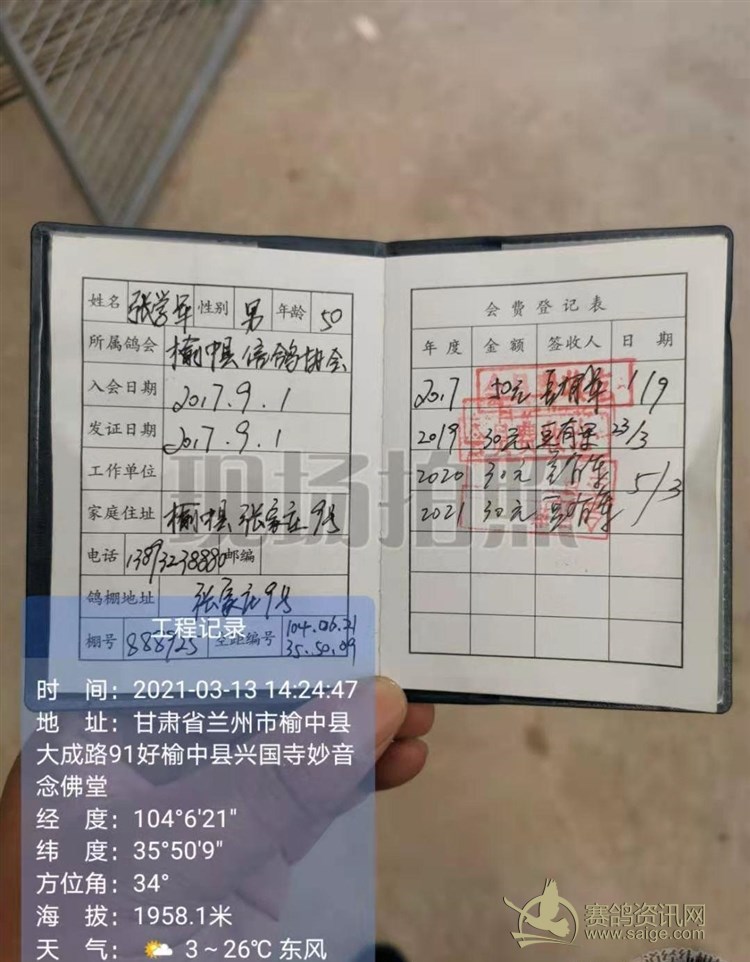 姓名 张学军 性别 男 年龄 50
所属鸽会 榆中县信鸽协会
入会日期 2017.9.1
发证日期 2017.9.1
工作单位
家庭住址 榆中县张家庄9号
电话 13893238880 邮编
鸽棚地址 张家庄9号
棚号 888925 空距编号 104.06.21
35.50.09
会费登记表
年度 金额 签收人 日期
2017 30元 1/9
2019 30元 23/3
2020 30元 5/3
2021 30元
现场拍照
工程记录
时 间：2021-03-13 14:24:47
地 址：甘肃省兰州市榆中县
大成路91好榆中县兴国寺妙音
念佛堂
经 度：104°6'21"
纬 度：35°50'9"
方位角：34°
海 拔：1958.1米
天 气： 3～26℃ 东风
赛鸽资讯网
www.saige.com